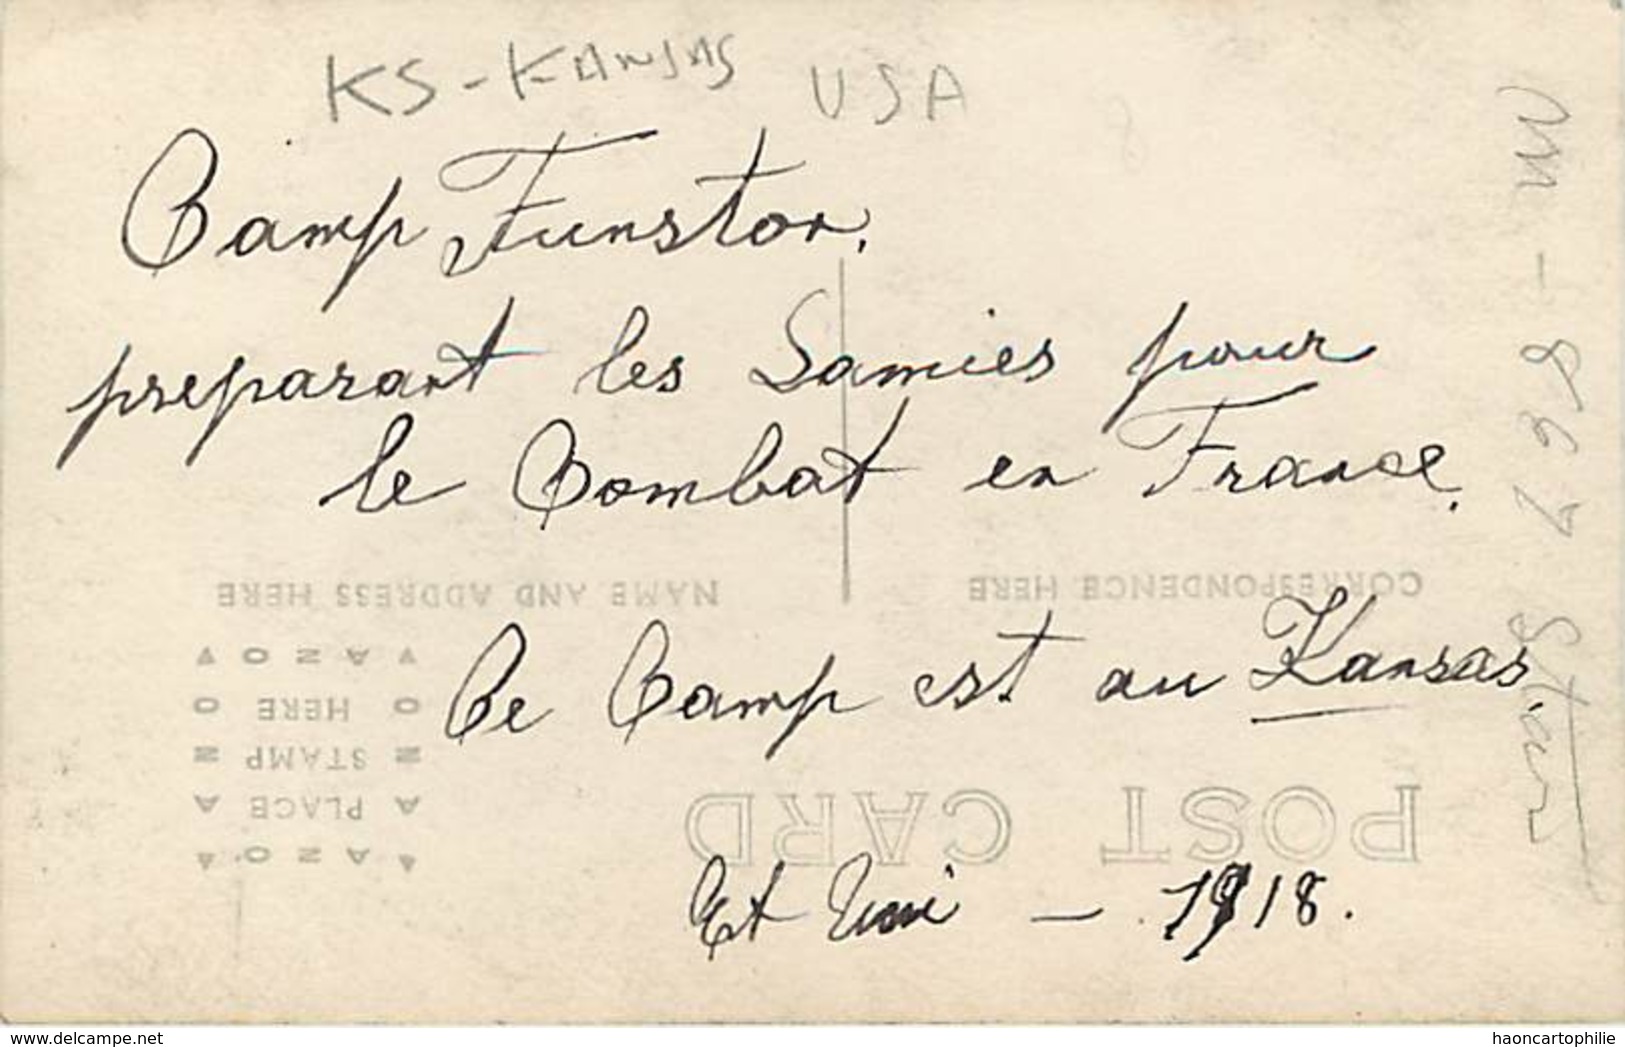 KS-KANSAS USA
Camp Funston.
preparant les Samies pour
le Combat en France.
CORRESPONDENCE HERE
NAME AND ADDRESS HERE
Ce Camp est au Kansas.
POST CARD
AZO
PLACE
STAMP
HERE
AZO
Et Uni - 1918.
delcampe.net
haoncartophilie